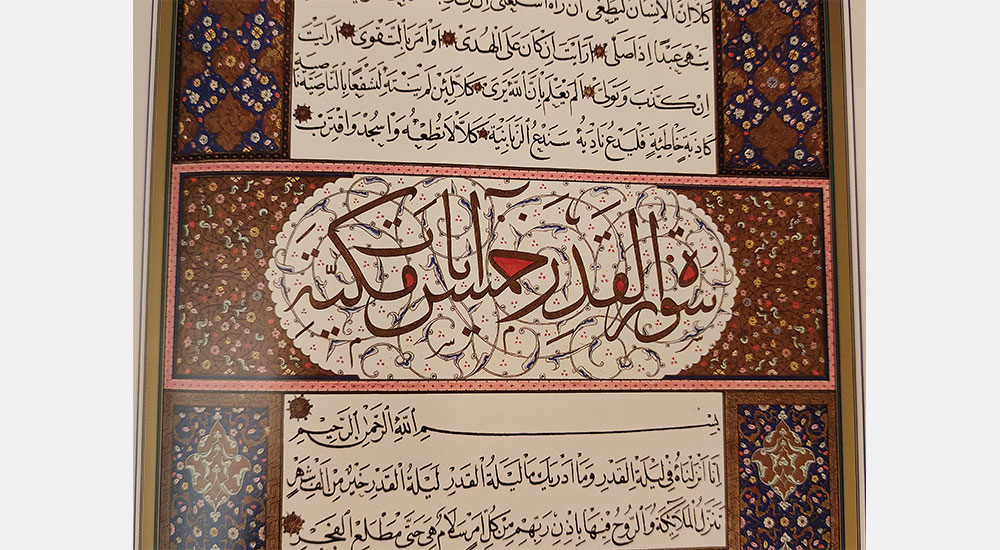 كلا ان الانسان ليطغى ان راه استغنى ان
ينهى عبدا اذا صلى ارايت ان كان على الهدى او امر بالتقوى ارايت
ان كذب وتولى الم يعلم بان الله يرى كلا لئن لم ينته لنسفعا بالناصية ناصية
كاذبة خاطئة فليدع ناديه سندع الزبانية كلا لا تطعه واسجد واقترب
سورة القدر خمس آيات مكية
بسم الله الرحمن الرحيم
انا انزلناه فى ليلة القدر وما ادريك ما ليلة القدر ليلة القدر خير من الف شهر
تنزل الملائكة والروح فيها باذن ربهم من كل امر سلام هى حتى مطلع الفجر